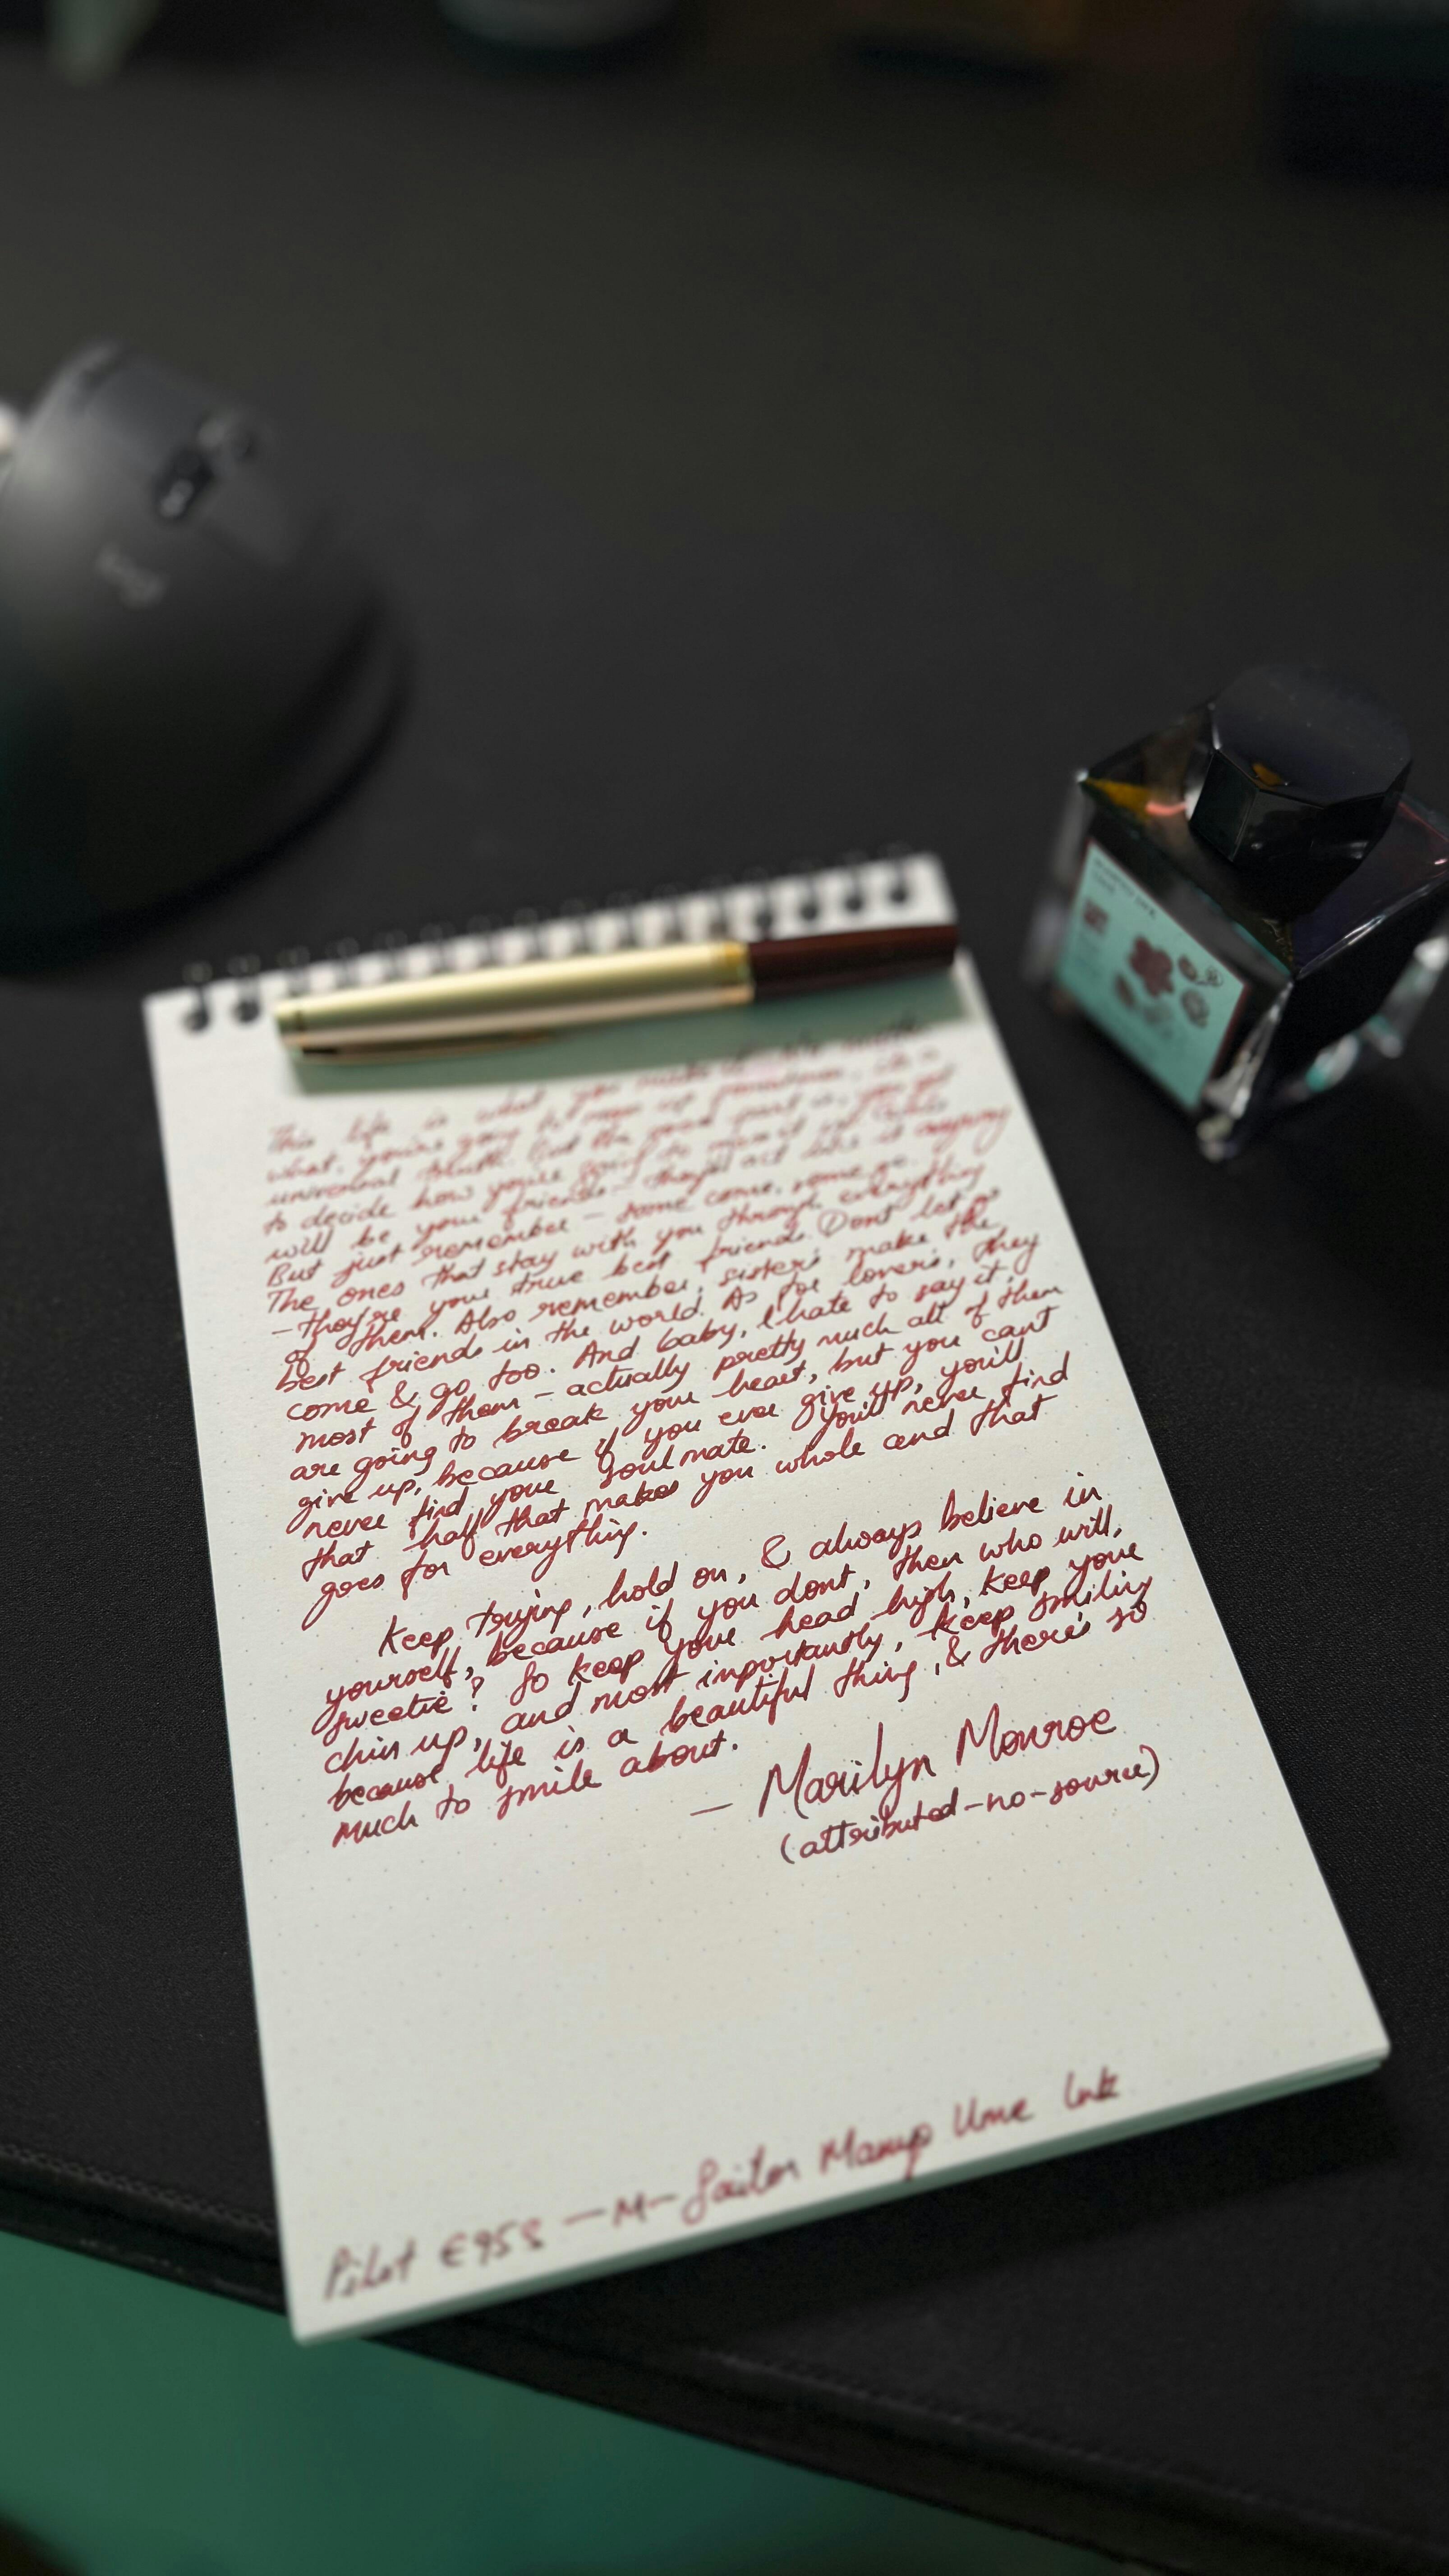 This life is what you make it. No matter
what, you're going to mess up sometimes, it's a
universal truth. But the good part is, you get
to decide how you're going to mess it up. Girls
will be your friends - they'll act like it anyway
But just remember - some come, some go.
The ones that stay with you through everything
- they're your true best friends. Don't let go
of them. Also remember, sisters make the
best friends in the world. As for lovers, they
come & go too. And baby, I hate to say it,
most of them - actually pretty much all of them
are going to break your heart, but you can't
give up, because if you ever give up, you'll
never find your soulmate. You'll never find
that half that makes you whole and that
goes for everything.
Keep trying, hold on, & always believe in
yourself, because if you dont, then who will,
sweetie? So keep your head high, keep your
chin up, and most importantly, keep smiling
because, life is a beautiful thing, & there's so
much to smile about.
— Marilyn Monroe
(attributed-no-source)
Pilot E95S —M— Sailor Manyo Ume Ink